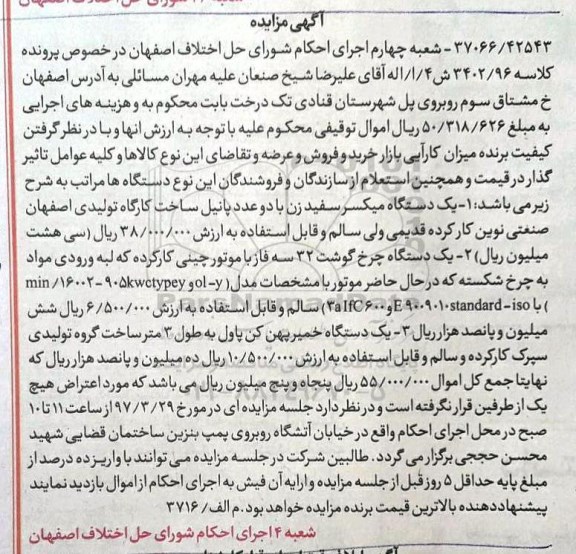 آگهی مزایده
۳۷۰۶۶/۴۲۵۴۳ - شعبه چهارم اجرای احکام شورای حل اختلاف اصفهان در خصوص پرونده
کلاسه ۳۴۰۲/۹۶ ش۴/ا/اله آقای علیرضا شیخ صنعان علیه مهران مسائلی به آدرس اصفهان
خ مشتاق سوم روبروی پل شهرستان قنادی تک درخت بابت محکوم به و هزینه های اجرایی
به مبلغ ۵۰/۳۱۸/۶۲۶ ریال اموال توقیفی محکوم علیه با توجه به ارزش انها و با در نظر گرفتن
کیفیت برنده میزان کارآیی بازار خرید و فروش و عرضه و تقاضای این نوع کالاها و کلیه عوامل تاثیر
گذار در قیمت و همچنین استعلام از سازندگان و فروشندگان این نوع دستگاه ها مراتب به شرح
زیر می باشد: ۱- یک دستگاه میکسر سفید زن با دو عدد پاتیل ساخت کارگاه تولیدی اصفهان
صنعتی نوین کار کرده قدیمی ولی سالم و قابل استفاده به ارزش ۳۸/۰۰۰/۰۰۰ ریال (سی هشت
میلیون ریال) ۲- یک دستگاه چرخ گوشت ۳۲ سه فاز با موتور چینی کارکرده که لبه ورودی مواد
به چرخ شکسته که در حال حاضر موتور با مشخصات مدل( ol-y و ۹۰۵kwctypey -۱۶۰۰۲/ min
) با standard-iso۹۰۰۹۰۱۰E و ۳alfC۶۰۰) سالم و قابل استفاده به ارزش ۶/۵۰۰/۰۰۰ ریال شش
میلیون و پانصد هزار ریال ۳- یک دستگاه خمیر پهن کن پاول به طول ۳ متر ساخت گروه تولیدی
سپرک کارکرده و سالم و قابل استفاده به ارزش ۱۰/۵۰۰/۰۰۰ ریال ده میلیون و پانصد هزار ریال که
نهایتا جمع کل اموال ۵۵/۰۰۰/۰۰۰ ریال پنجاه و پنج میلیون ریال می باشد که مورد اعتراض هیچ
یک از طرفین قرار نگرفته است و در نظر دارد جلسه مزایده ای در مورخ ۹۷/۳/۲۹ از ساعت ۱۱ تا ۱۰
صبح در محل اجرای احکام واقع در خیابان آتشگاه روبروی پمپ بنزین ساختمان قضایی شهید
محسن حججی برگزار می گردد . طالبین شرکت در جلسه مزایده می توانند با واریز ده درصد از
مبلغ پایه حداقل ۵ روز قبل از جلسه مزایده و ارایه آن فیش به اجرای احکام از اموال بازدید نمایند
پیشنهاد دهنده بالاترین قیمت برنده مزایده خواهد بود. م الف/ ۳۷۱۶
شعبه ۴ اجرای احکام شورای حل اختلاف اصفهان